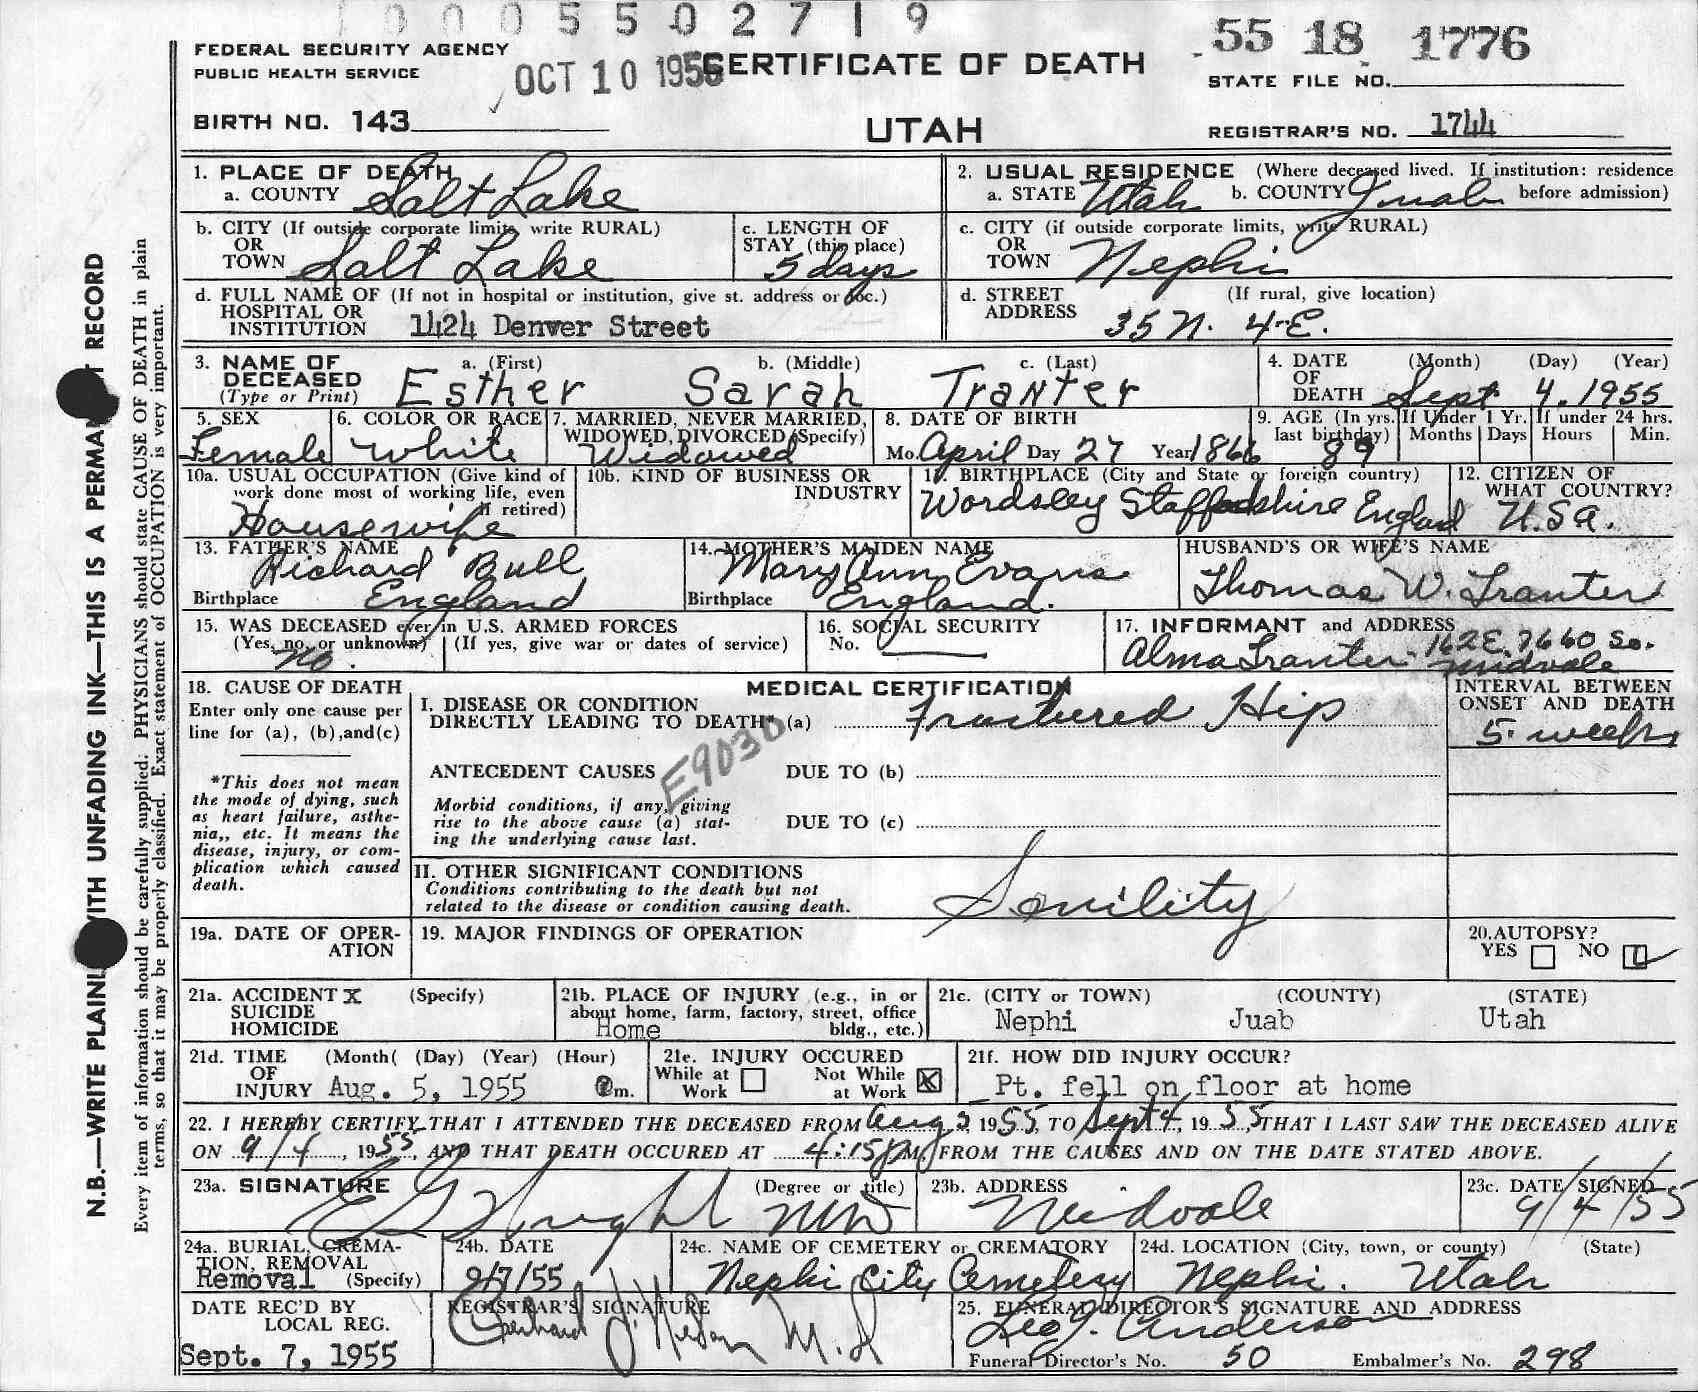 1 0 0 0 5 5 0 2 7 1 9
FEDERAL SECURITY AGENCY
PUBLIC HEALTH SERVICE
OCT 10 1955
CERTIFICATE OF DEATH
55 18 1776
STATE FILE NO.
BIRTH NO. 143
UTAH
REGISTRAR'S NO. 1744
1. PLACE OF DEATH
a. COUNTY Salt Lake
2. USUAL RESIDENCE (Where deceased lived. If institution: residence before admission)
a. STATE Utah b. COUNTY Juab
b. CITY (If outside corporate limits, write RURAL)
OR
TOWN Salt Lake
c. LENGTH OF
STAY (this place)
5 days
c. CITY (if outside corporate limits, write RURAL)
OR
TOWN Nephi
d. FULL NAME OF (If not in hospital or institution, give st. address or loc.)
HOSPITAL OR
INSTITUTION 1424 Denver Street
d. STREET (If rural, give location)
ADDRESS 35 N. 4-E.
3. NAME OF a. (First) b. (Middle) c. (Last)
DECEASED Esther Sarah Tranter
(Type or Print)
4. DATE (Month) (Day) (Year)
OF
DEATH Sept 4. 1955
5. SEX
Female
6. COLOR OR RACE
White
7. MARRIED, NEVER MARRIED,
WIDOWED, DIVORCED (Specify)
Widowed
8. DATE OF BIRTH
Mo. April Day 27 Year 1866
9. AGE (In yrs. last birthday) 89
If Under 1 Yr. Months Days
If under 24 hrs. Hours Min.
10a. USUAL OCCUPATION (Give kind of
work done most of working life, even
if retired)
Housewife
10b. KIND OF BUSINESS OR
INDUSTRY
11. BIRTHPLACE (City and State or foreign country)
Wordsley Staffordshire England
12. CITIZEN OF
WHAT COUNTRY?
U.S.A.
13. FATHER'S NAME
Richard Bull
Birthplace England
14. MOTHER'S MAIDEN NAME
Mary Ann Evans
Birthplace England.
HUSBAND'S OR WIFE'S NAME
Thomas W. Tranter
15. WAS DECEASED ever in U.S. ARMED FORCES
(Yes, no, or unknown) (If yes, give war or dates of service)
no.
16. SOCIAL SECURITY
No.
17. INFORMANT and ADDRESS 162 E. 7660 So.
Alma Tranter. Midvale
18. CAUSE OF DEATH
Enter only one cause per
line for (a), (b), and (c)
*This does not mean
the mode of dying, such
as heart failure, asthe-
nia,, etc. It means the
disease, injury, or com-
plication which caused
death.
MEDICAL CERTIFICATION
I. DISEASE OR CONDITION
DIRECTLY LEADING TO DEATH* (a) Fractured Hip
INTERVAL BETWEEN
ONSET AND DEATH
5. weeks
E9030
ANTECEDENT CAUSES DUE TO (b)
Morbid conditions, if any, giving
rise to the above cause (a) stat-
ing the underlying cause last.
DUE TO (c)
II. OTHER SIGNIFICANT CONDITIONS
Conditions contributing to the death but not
related to the disease or condition causing death.
Senility
19a. DATE OF OPER-
ATION
19. MAJOR FINDINGS OF OPERATION
20. AUTOPSY?
YES NO
21a. ACCIDENT X (Specify)
SUICIDE
HOMICIDE
21b. PLACE OF INJURY (e.g., in or
about home, farm, factory, street, office
bldg., etc.)
Home
21c. (CITY or TOWN) (COUNTY) (STATE)
Nephi Juab Utah
21d. TIME (Month( (Day) (Year) (Hour)
OF
INJURY Aug. 5, 1955 ?m.
21e. INJURY OCCURED
While at Work Not While at Work X
21f. HOW DID INJURY OCCUR?
Pt. fell on floor at home
22. I HEREBY CERTIFY THAT I ATTENDED THE DECEASED FROM Aug 5, 1955, TO Sept 4, 1955, THAT I LAST SAW THE DECEASED ALIVE
ON 9/4, 1955, AND THAT DEATH OCCURED AT 4:15 P M. FROM THE CAUSES AND ON THE DATE STATED ABOVE.
23a. SIGNATURE (Degree or title)
23b. ADDRESS
Midvale
23c. DATE SIGNED
9/4/55
24a. BURIAL, CREMA-
TION, REMOVAL
Removal (Specify)
24b. DATE
9/7/55
24c. NAME OF CEMETERY or CREMATORY
Nephi City Cemetery
24d. LOCATION (City, town, or county) (State)
Nephi. Utah
DATE REC'D BY
LOCAL REG.
Sept. 7, 1955
REGISTRAR'S SIGNATURE
M.D
25. FUNERAL DIRECTOR'S SIGNATURE AND ADDRESS
Anderson
Funeral Director's No. 50 Embalmer's No. 298
N.B.—WRITE PLAINLY WITH UNFADING INK—THIS IS A PERMANENT RECORD
Every item of information should be carefully supplied. PHYSICIANS should state CAUSE OF DEATH in plain
terms, so that it may be properly classified. Exact statement of OCCUPATION is very important.